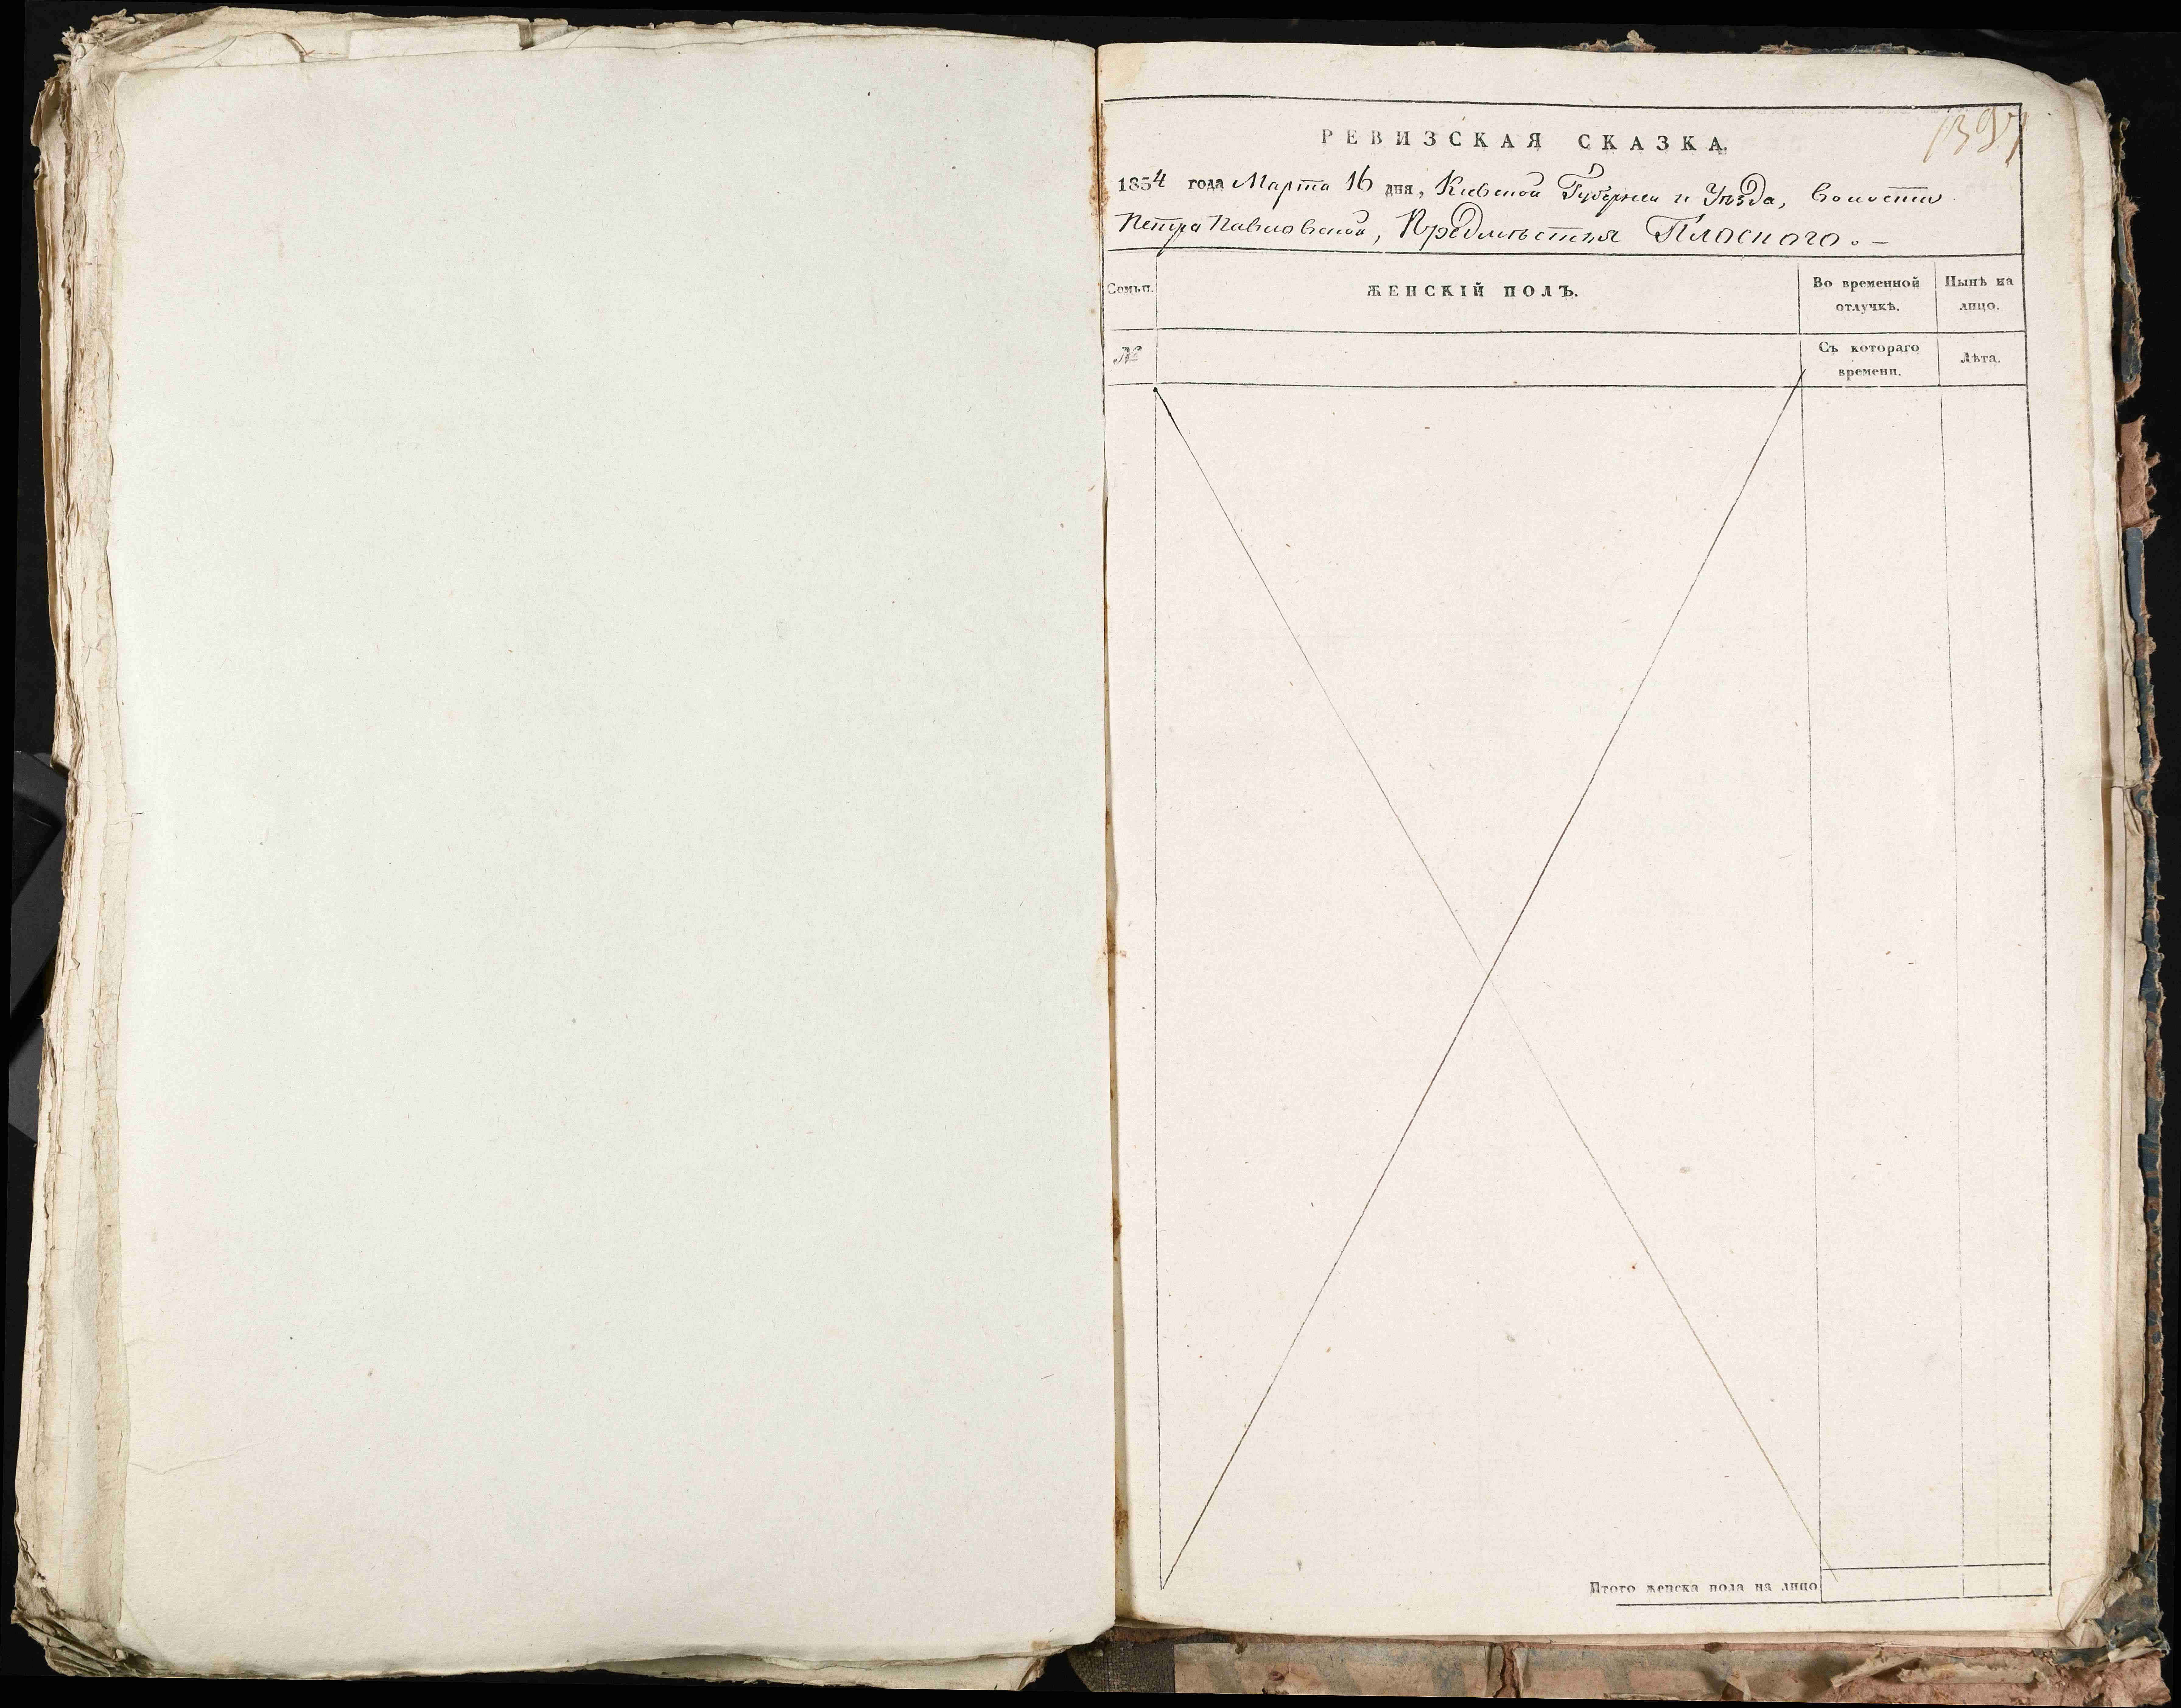 1397
РЕВИЗСКАЯ СКАЗКА.
1854 года Марта 16 дня, Киевской Губернии и Уѣзда, волости
Петра Павловской, Предмѣстья Плоского. —
Семьи.
ЖЕНСКІЙ ПОЛЪ.
Во временной отлучкѣ.
Нынѣ на лицо.
№
Съ котораго времени.
Лѣта.
Итого женска пола на лицо